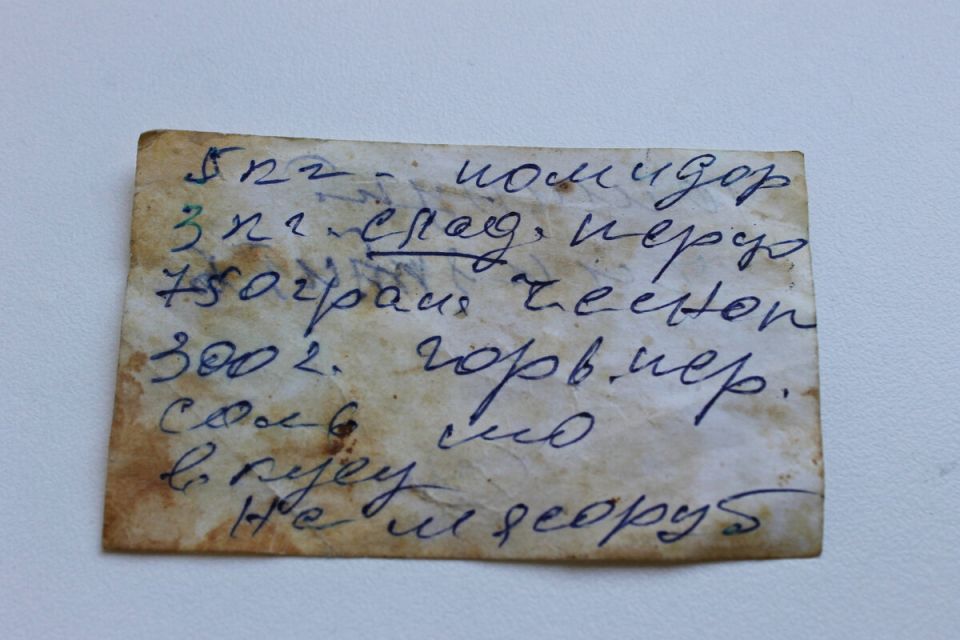 5 кг. помидор
3 кг. слад. перца
750 грам. чеснок
300 г. горьк. пер.
соль по
вкусу
на мясоруб